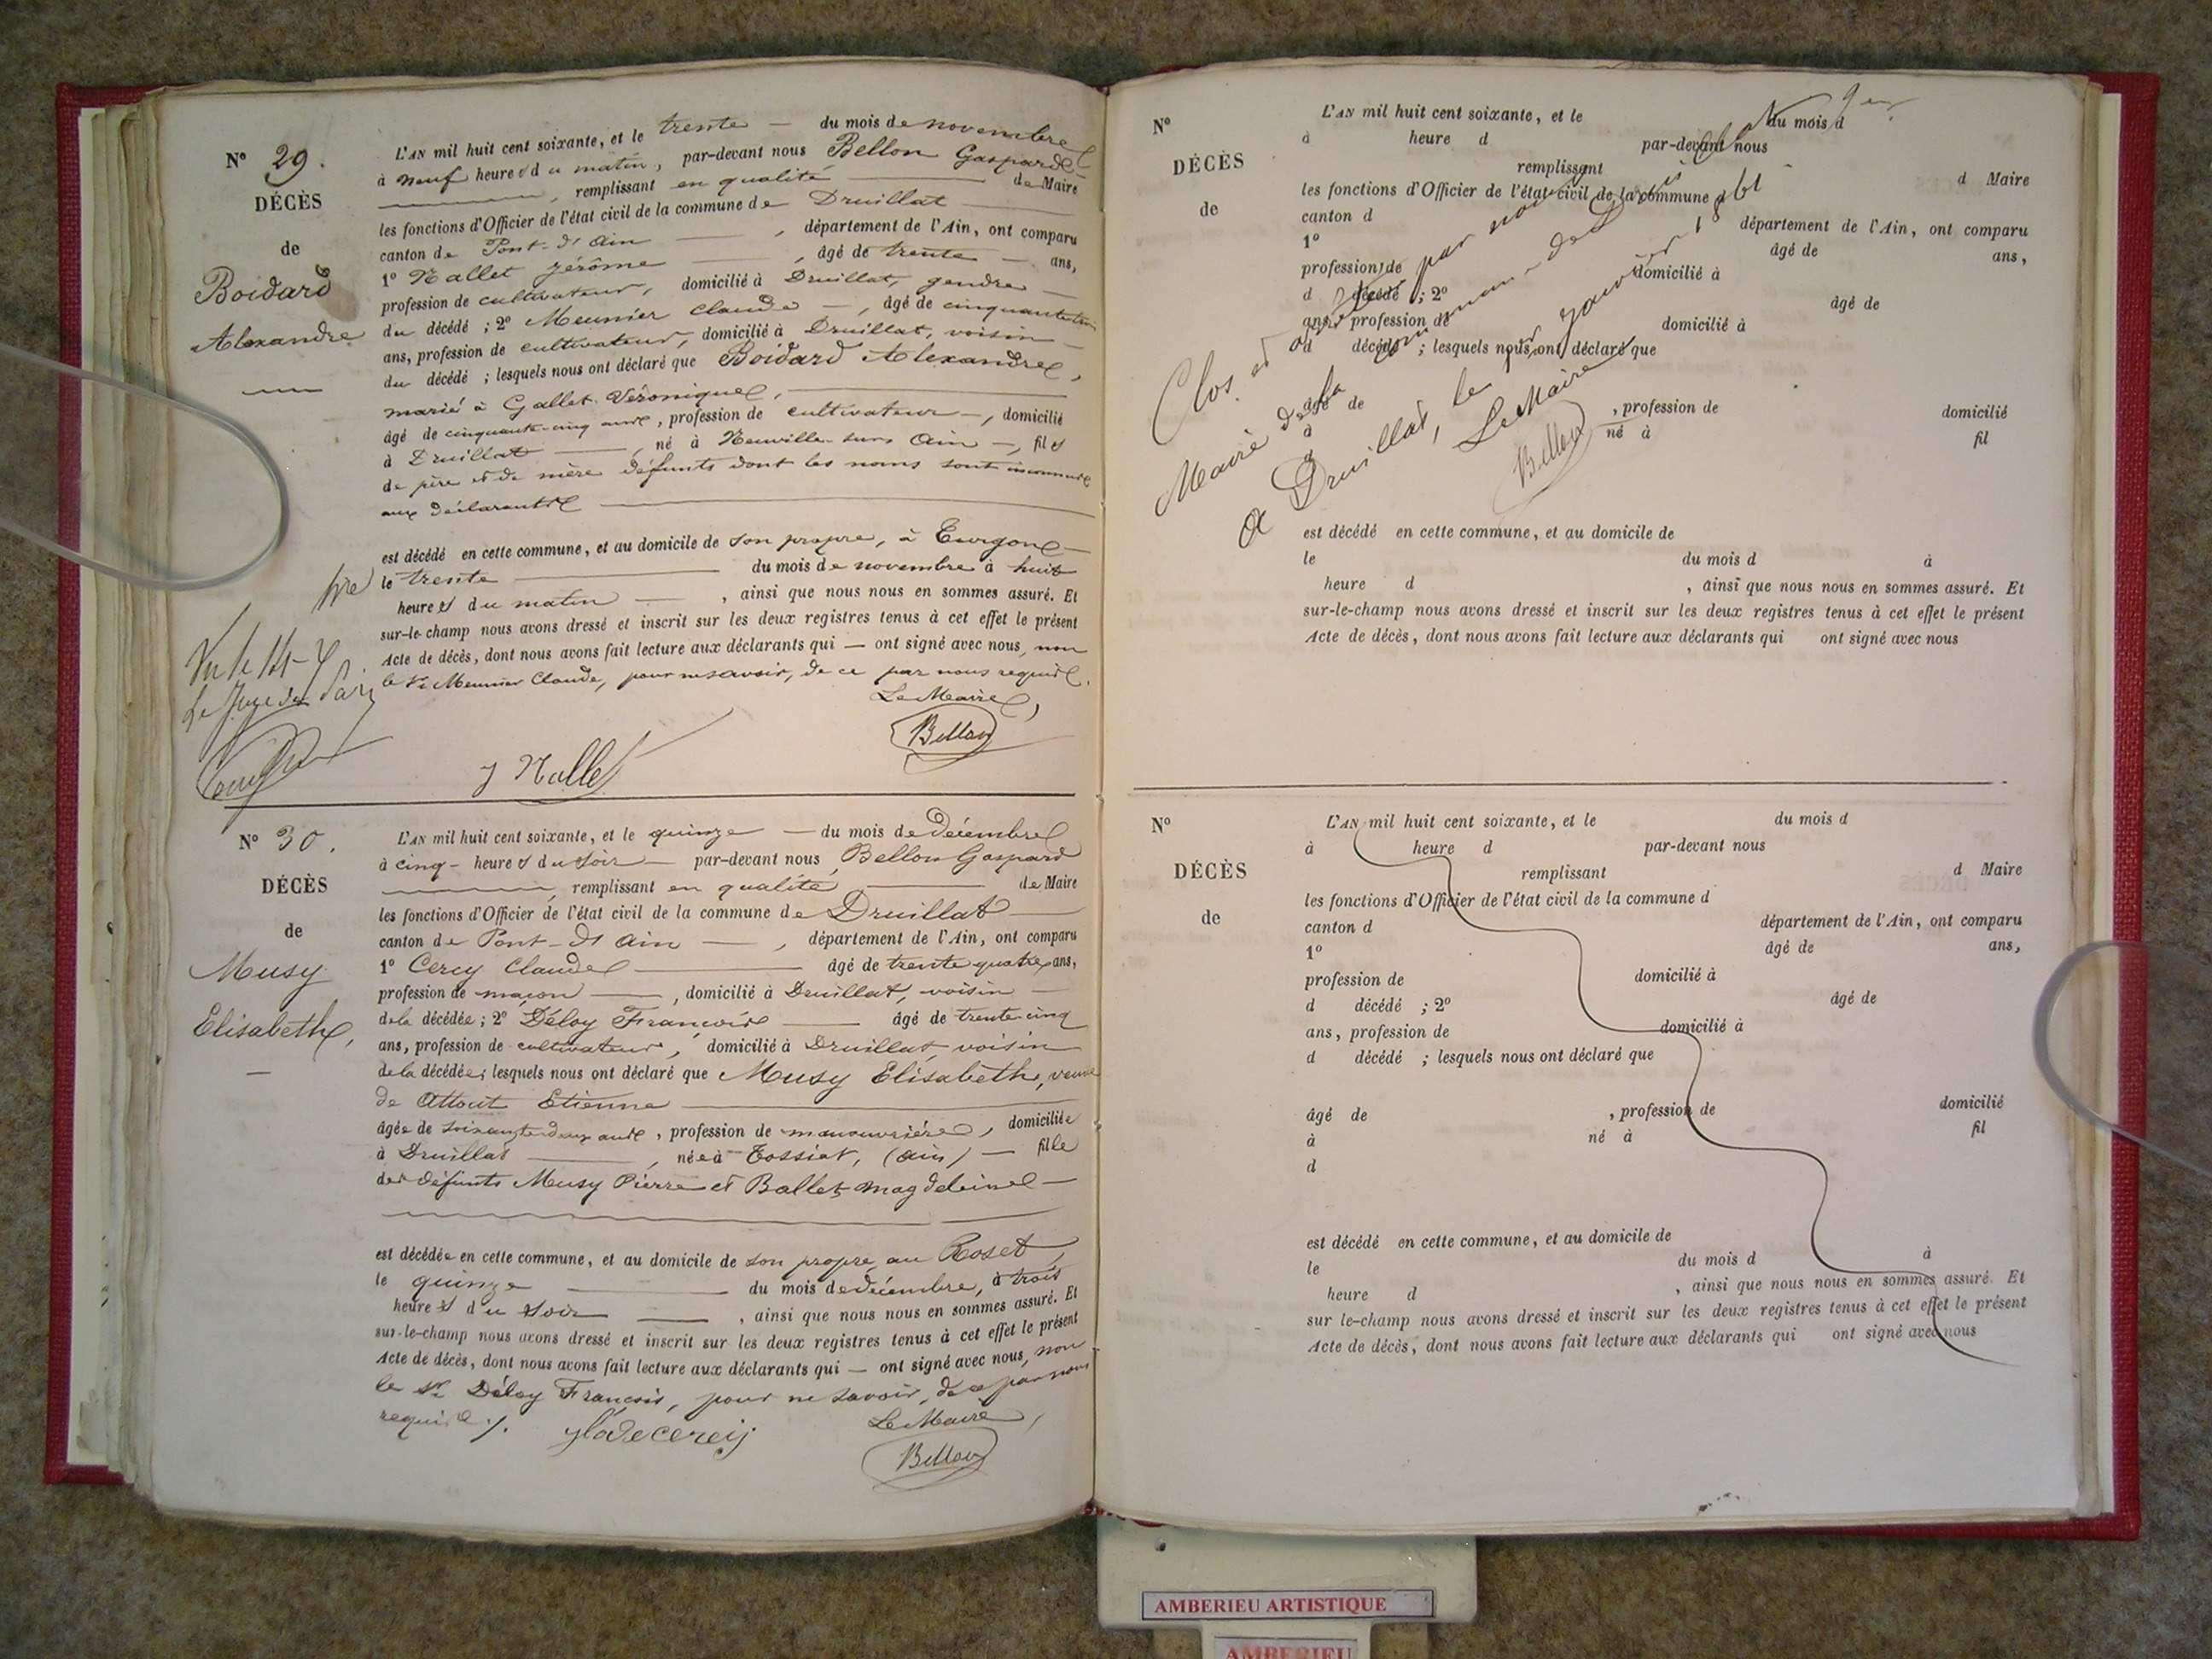 N° 29.
DÉCÈS
de
Boidard
Alexandre
L'AN mil huit cent soixante, et le trente — du mois de novembre
à neuf heures du matin, par-devant nous Bellon Gaspard
remplissant en qualité de Maire
les fonctions d'Officier de l'état civil de la commune de Druillat
canton de Pont-d'Ain, département de l'Ain, ont comparu
1° Nallet Jérôme, âgé de trente — ans,
profession de cultivateur, domicilié à Druillat, gendre
du décédé ; 2° Meunier Claude —, âgé de cinquante
ans, profession de cultivateur, domicilié à Druillat, voisin
du décédé ; lesquels nous ont déclaré que Boidard Alexandre,
marié à Gallet Véronique,
âgé de cinquante-cinq ans, profession de cultivateur —, domicilié
à Druillat, né à Neuville sur Ain —, fils
de père et de mère défunts dont les noms sont inconnus
aux déclarants
est décédé en cette commune, et au domicile de son propre, à Turgon
le trente du mois de novembre à huit
heures du matin, ainsi que nous nous en sommes assuré. Et
sur-le-champ nous avons dressé et inscrit sur les deux registres tenus à cet effet le présent
Acte de décès, dont nous avons fait lecture aux déclarants qui — ont signé avec nous, non
le Sr Meunier Claude, pour ne savoir, de ce par nous requis.
Le Maire,
Bellon
J Nallet
Vu le
Le Juge de Paix
N° 30.
DÉCÈS
de
Musy
Elisabeth,
L'AN mil huit cent soixante, et le quinze — du mois de décembre
à cinq heures du soir — par-devant nous Bellon Gaspard
remplissant en qualité de Maire
les fonctions d'Officier de l'état civil de la commune de Druillat
canton de Pont-d'Ain —, département de l'Ain, ont comparu
1° Cercy Claude âgé de trente quatre ans,
profession de maçon, domicilié à Druillat, voisin
de la décédée ; 2° Déloy François âgé de trente cinq
ans, profession de cultivateur, domicilié à Druillat, voisin
de la décédée ; lesquels nous ont déclaré que Musy Elisabeth, veuve
de Attout Etienne
âgée de soixante deux ans, profession de manouvrière, domiciliée
à Druillat, née à Tossiat, (Ain) — fille
des défunts Musy Pierre et Ballet Magdeleine
est décédée en cette commune, et au domicile de son propre, au Roset,
le quinze du mois de décembre, à trois
heures du soir, ainsi que nous nous en sommes assuré. Et
sur-le-champ nous avons dressé et inscrit sur les deux registres tenus à cet effet le présent
Acte de décès, dont nous avons fait lecture aux déclarants qui — ont signé avec nous, non
le Sr Déloy François, pour ne savoir, de ce par nous
requis ./.
Le Maire,
Bellon
N°
DÉCÈS
de
L'AN mil huit cent soixante, et le du mois d
à heure d par-devant nous
remplissant d Maire
les fonctions d'Officier de l'état civil de la commune d
canton d département de l'Ain, ont comparu
1° âgé de ans,
profession de domicilié à
d décédé ; 2° âgé de
ans, profession de domicilié à
d décédé ; lesquels nous ont déclaré que
âgé de , profession de domicilié
à né à fil
d
est décédé en cette commune, et au domicile de
le du mois d à
heure d , ainsi que nous nous en sommes assuré. Et
sur-le-champ nous avons dressé et inscrit sur les deux registres tenus à cet effet le présent
Acte de décès, dont nous avons fait lecture aux déclarants qui ont signé avec nous
Clos et arrêté par nous
Maire de la commune de Druillat
A Druillat, le 1er janvier 1861
Le Maire
Bellon
N°
DÉCÈS
de
L'AN mil huit cent soixante, et le du mois d
à heure d par-devant nous
remplissant d Maire
les fonctions d'Officier de l'état civil de la commune d
canton d département de l'Ain, ont comparu
1° âgé de ans,
profession de domicilié à
d décédé ; 2° âgé de
ans, profession de domicilié à
d décédé ; lesquels nous ont déclaré que
âgé de , profession de domicilié
à né à fil
d
est décédé en cette commune, et au domicile de
le du mois d à
heure d , ainsi que nous nous en sommes assuré. Et
sur-le-champ nous avons dressé et inscrit sur les deux registres tenus à cet effet le présent
Acte de décès, dont nous avons fait lecture aux déclarants qui ont signé avec nous
AMBERIEU ARTISTIQUE
AMBERIEU